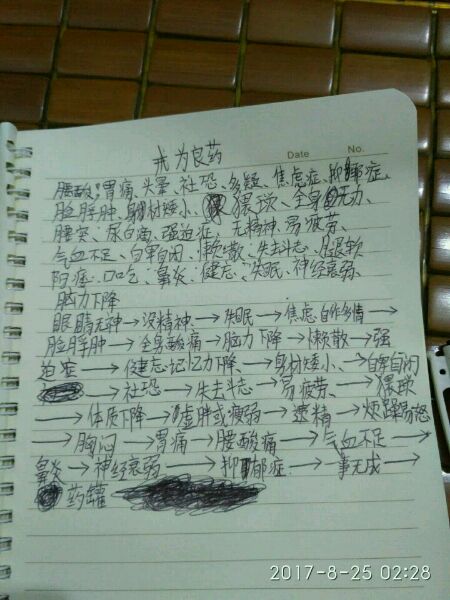 戒为良药
Date No.
腰酸,胃痛、头晕、社恐、多疑、焦虑症、抑郁症、
脸浮肿、身材矮小、猥琐、全身无力、
腰突、尿白痛、强迫症、无精神、易疲劳、
气血不足、自卑自闭、懒散、失去斗志、腿软
阳痿、口吃、鼻炎、健忘、失眠、神经衰弱、
脑力下降
眼睛无神→没精神、→失眠→焦虑自作多情→
脸浮肿→全身酸痛→脑力下降→懒散→强
迫症→健忘、记忆力下降、→身材矮小、→自卑自闭
→社恐→失去斗志→易疲劳、→猥琐
→体质下降→虚胖或瘦弱→遗精→烦躁易怒
→胸闷→胃痛→腰酸痛→气血不足→
鼻炎→神经衰弱→抑郁症→一事无成→
药罐
2017-8-25 02:28